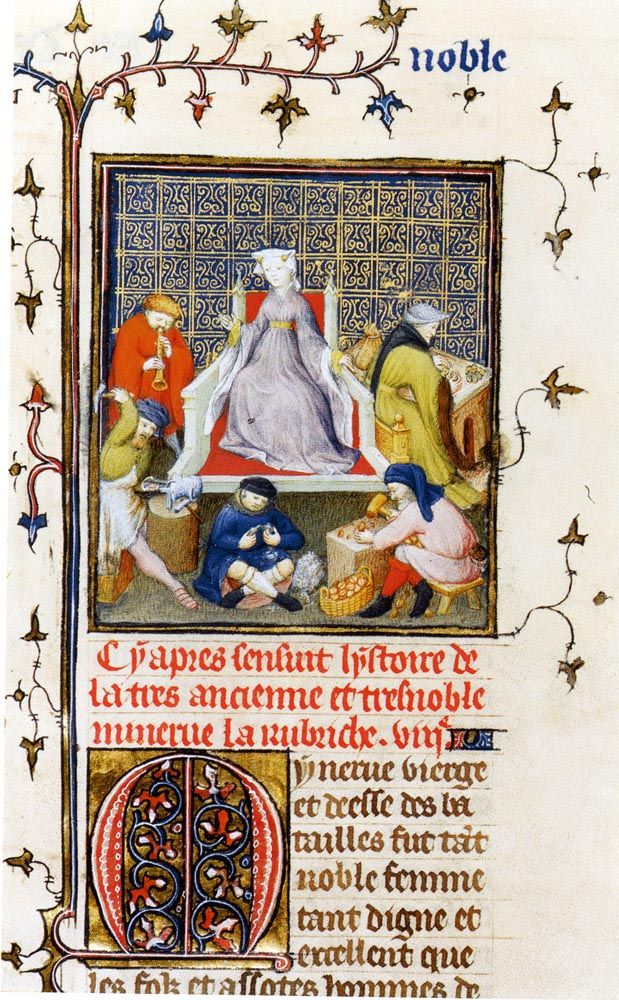 noble
Cy apres sensuit lystoire de
la tres ancienne et tresnoble
minerue la rubriche. viij.e
Mynerue vierge
et deesse des ba
tailles fut tāt
noble femme
tant digne et
excellent que
les folz et assotes hommes de